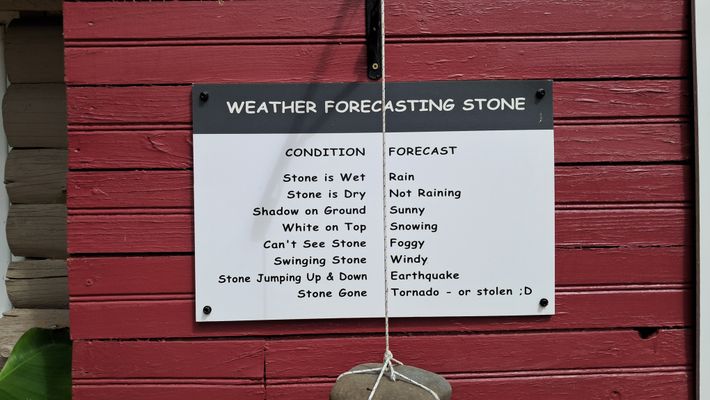 WEATHER FORECASTING STONE
CONDITION FORECAST
Stone is Wet Rain
Stone is Dry Not Raining
Shadow on Ground Sunny
White on Top Snowing
Can't See Stone Foggy
Swinging Stone Windy
Stone Jumping Up & Down Earthquake
Stone Gone Tornado - or stolen ;D